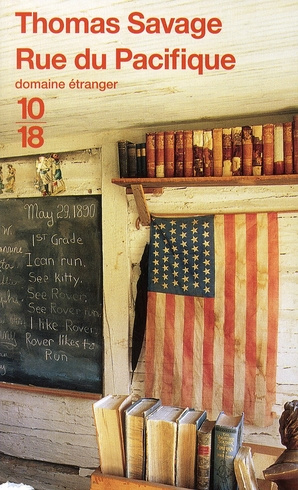 Thomas Savage
Rue du Pacifique
domaine étranger
10
18
May 29, 1890
1st Grade
I can run.
See kitty.
See Rover.
See Rover run
I like Rover.
Rover likes to
Run